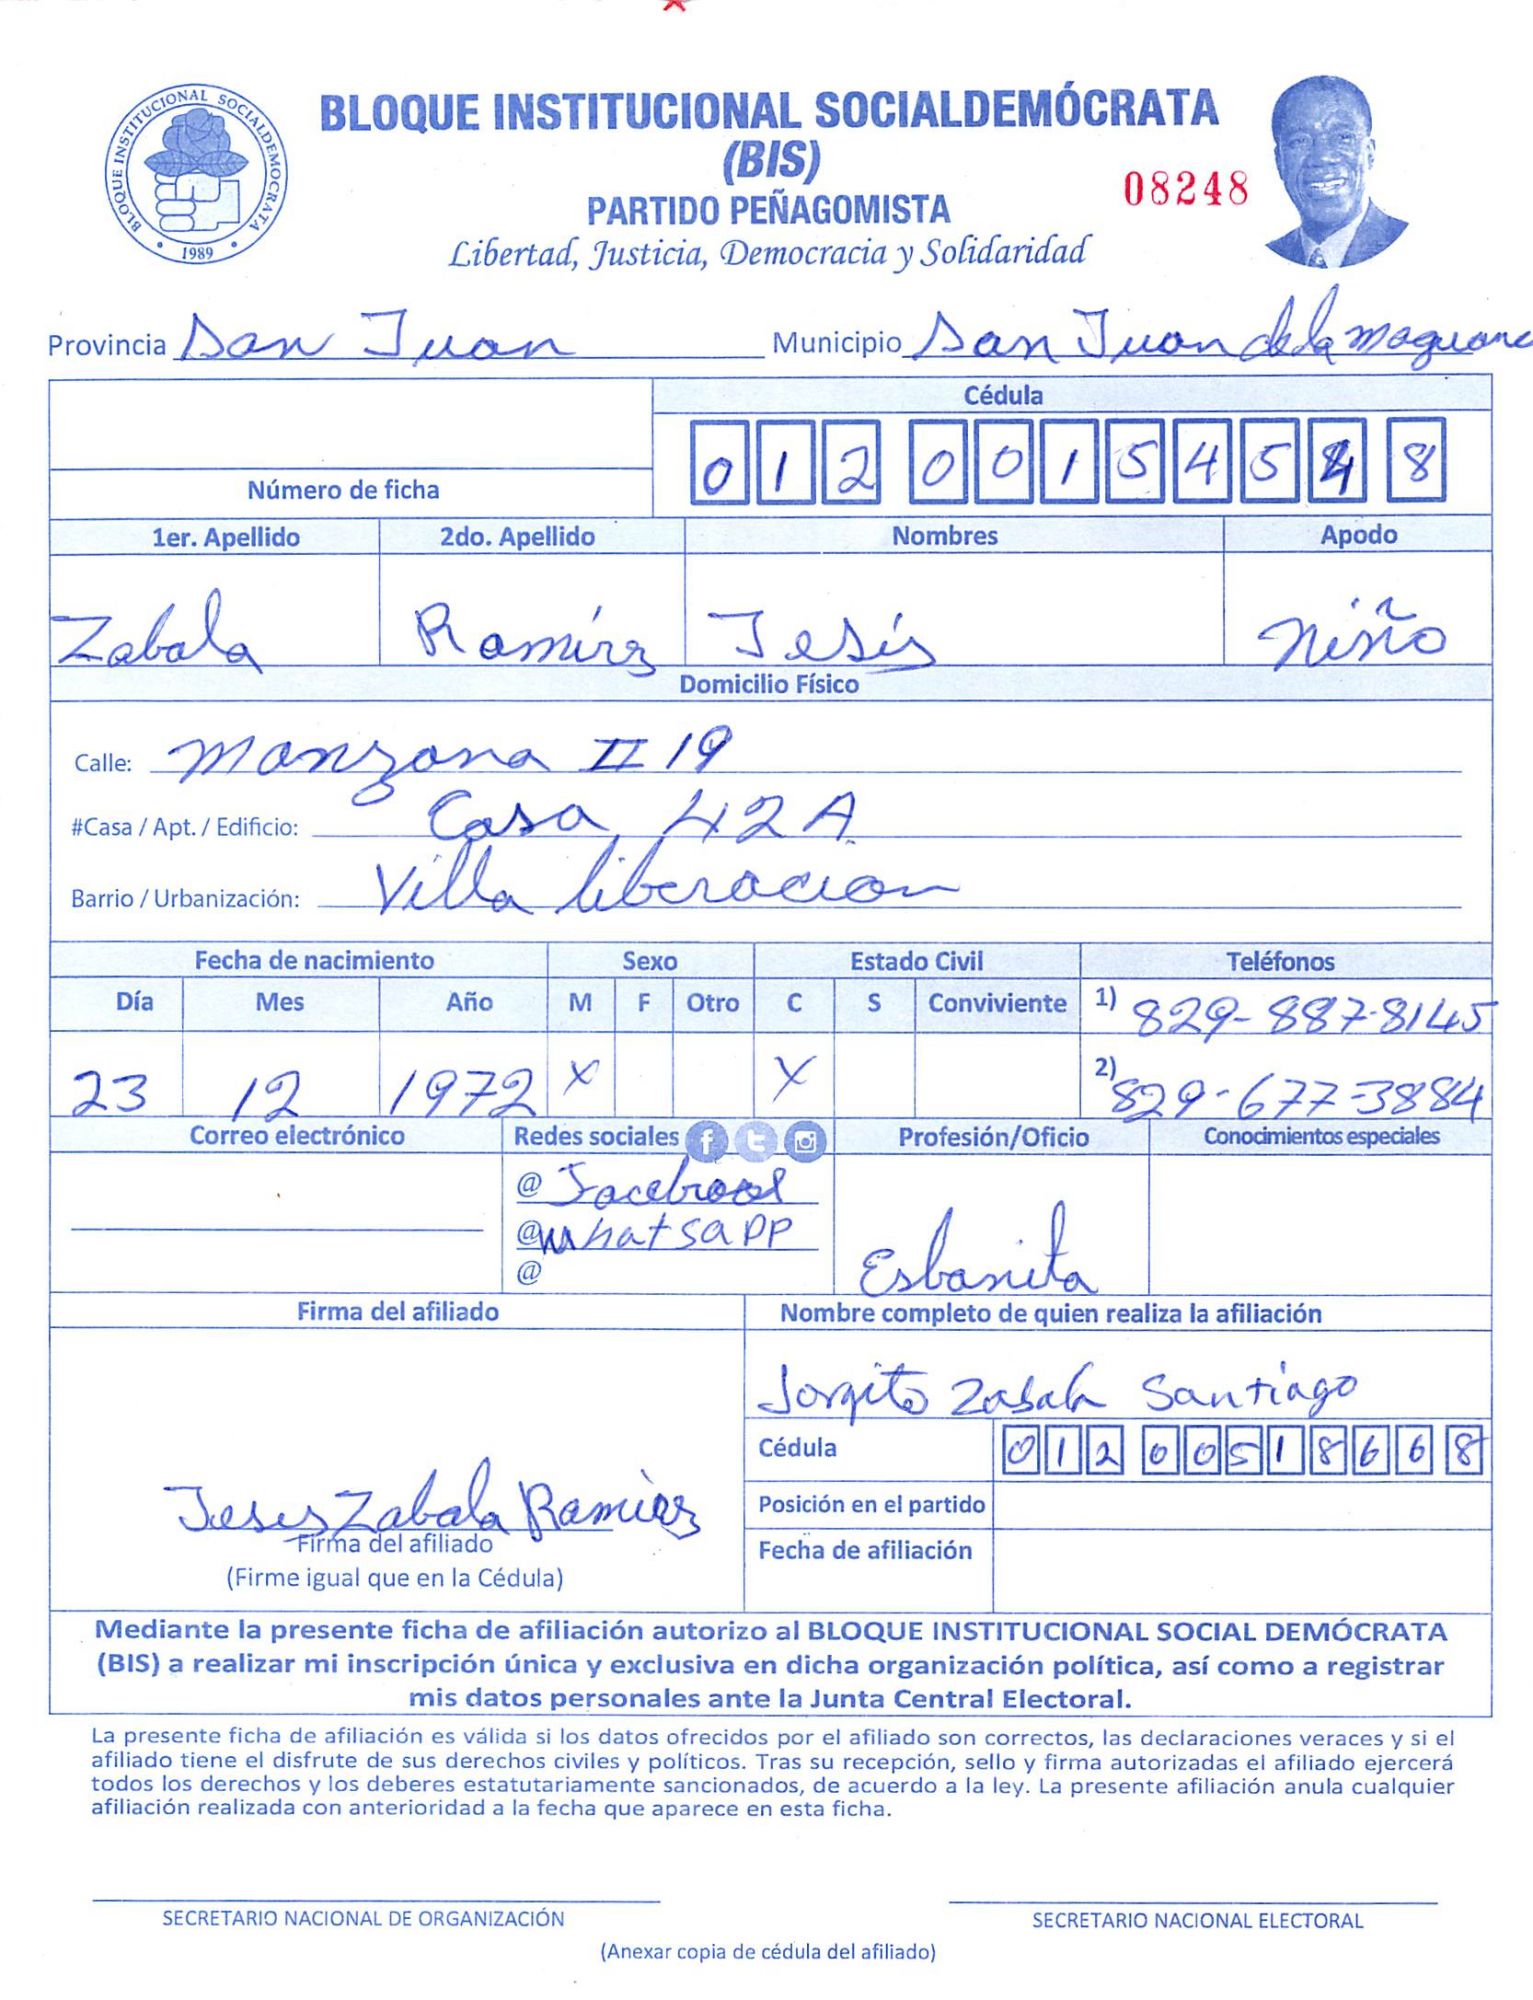 BLOQUE INSTITUCIONAL SOCIALDEMOCRATA
1989
BLOQUE INSTITUCIONAL SOCIALDEMÓCRATA
(BIS)
PARTIDO PEÑAGOMISTA
08248
Libertad, Justicia, Democracia y Solidaridad
Provincia San Juan Municipio San Juan de la maguana
Cédula
0 1 2 0 0 1 5 4 5 4 8
Número de ficha
1er. Apellido 2do. Apellido Nombres Apodo
Zabala Ramírz Jesús Niño
Domicilio Físico
Calle: Manzana II 19
#Casa / Apt. / Edificio: Casa 42A
Barrio / Urbanización: Villa liberacion
Fecha de nacimiento Sexo Estado Civil Teléfonos
Día Mes Año M F Otro C S Conviviente 1) 829-887-8145
23 12 1972 X X 2) 829-677-3884
Correo electrónico Redes sociales Profesión/Oficio Conocimientos especiales
@ Facebook
@ whatsapp
@
Esbanita
Firma del afiliado Nombre completo de quien realiza la afiliación
Jorgito Zabala Santiago
Cédula 0 1 2 0 0 5 1 8 6 6 8
Posición en el partido
Jesus Zabala Ramírz
Firma del afiliado
Fecha de afiliación
(Firme igual que en la Cédula)
Mediante la presente ficha de afiliación autorizo al BLOQUE INSTITUCIONAL SOCIAL DEMÓCRATA
(BIS) a realizar mi inscripción única y exclusiva en dicha organización política, así como a registrar
mis datos personales ante la Junta Central Electoral.
La presente ficha de afiliación es válida si los datos ofrecidos por el afiliado son correctos, las declaraciones veraces y si el
afiliado tiene el disfrute de sus derechos civiles y políticos. Tras su recepción, sello y firma autorizadas el afiliado ejercerá
todos los derechos y los deberes estatutariamente sancionados, de acuerdo a la ley. La presente afiliación anula cualquier
afiliación realizada con anterioridad a la fecha que aparece en esta ficha.
SECRETARIO NACIONAL DE ORGANIZACIÓN SECRETARIO NACIONAL ELECTORAL
(Anexar copia de cédula del afiliado)